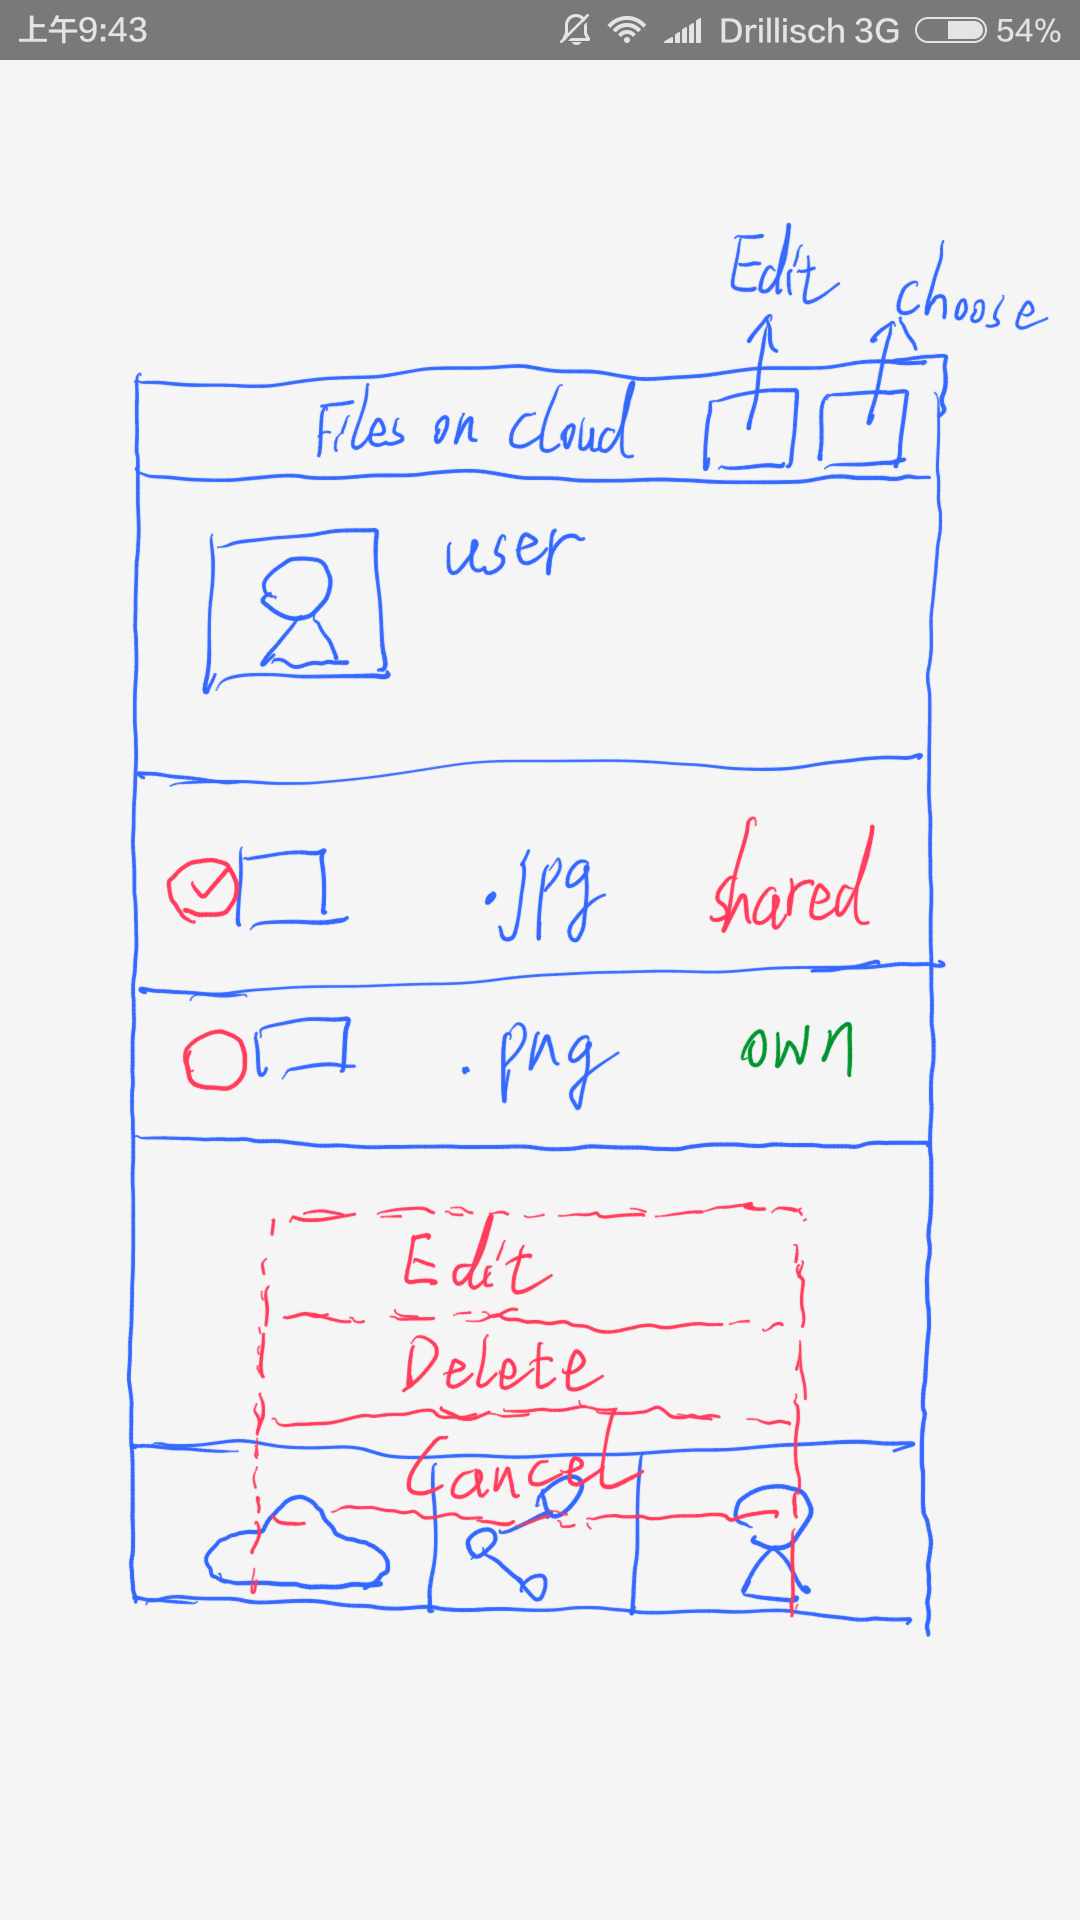 上午9:43 Drillisch 3G 54%
Edit choose
Files on Cloud
user
.jpg shared
.png own
Edit
Delete
Cancel